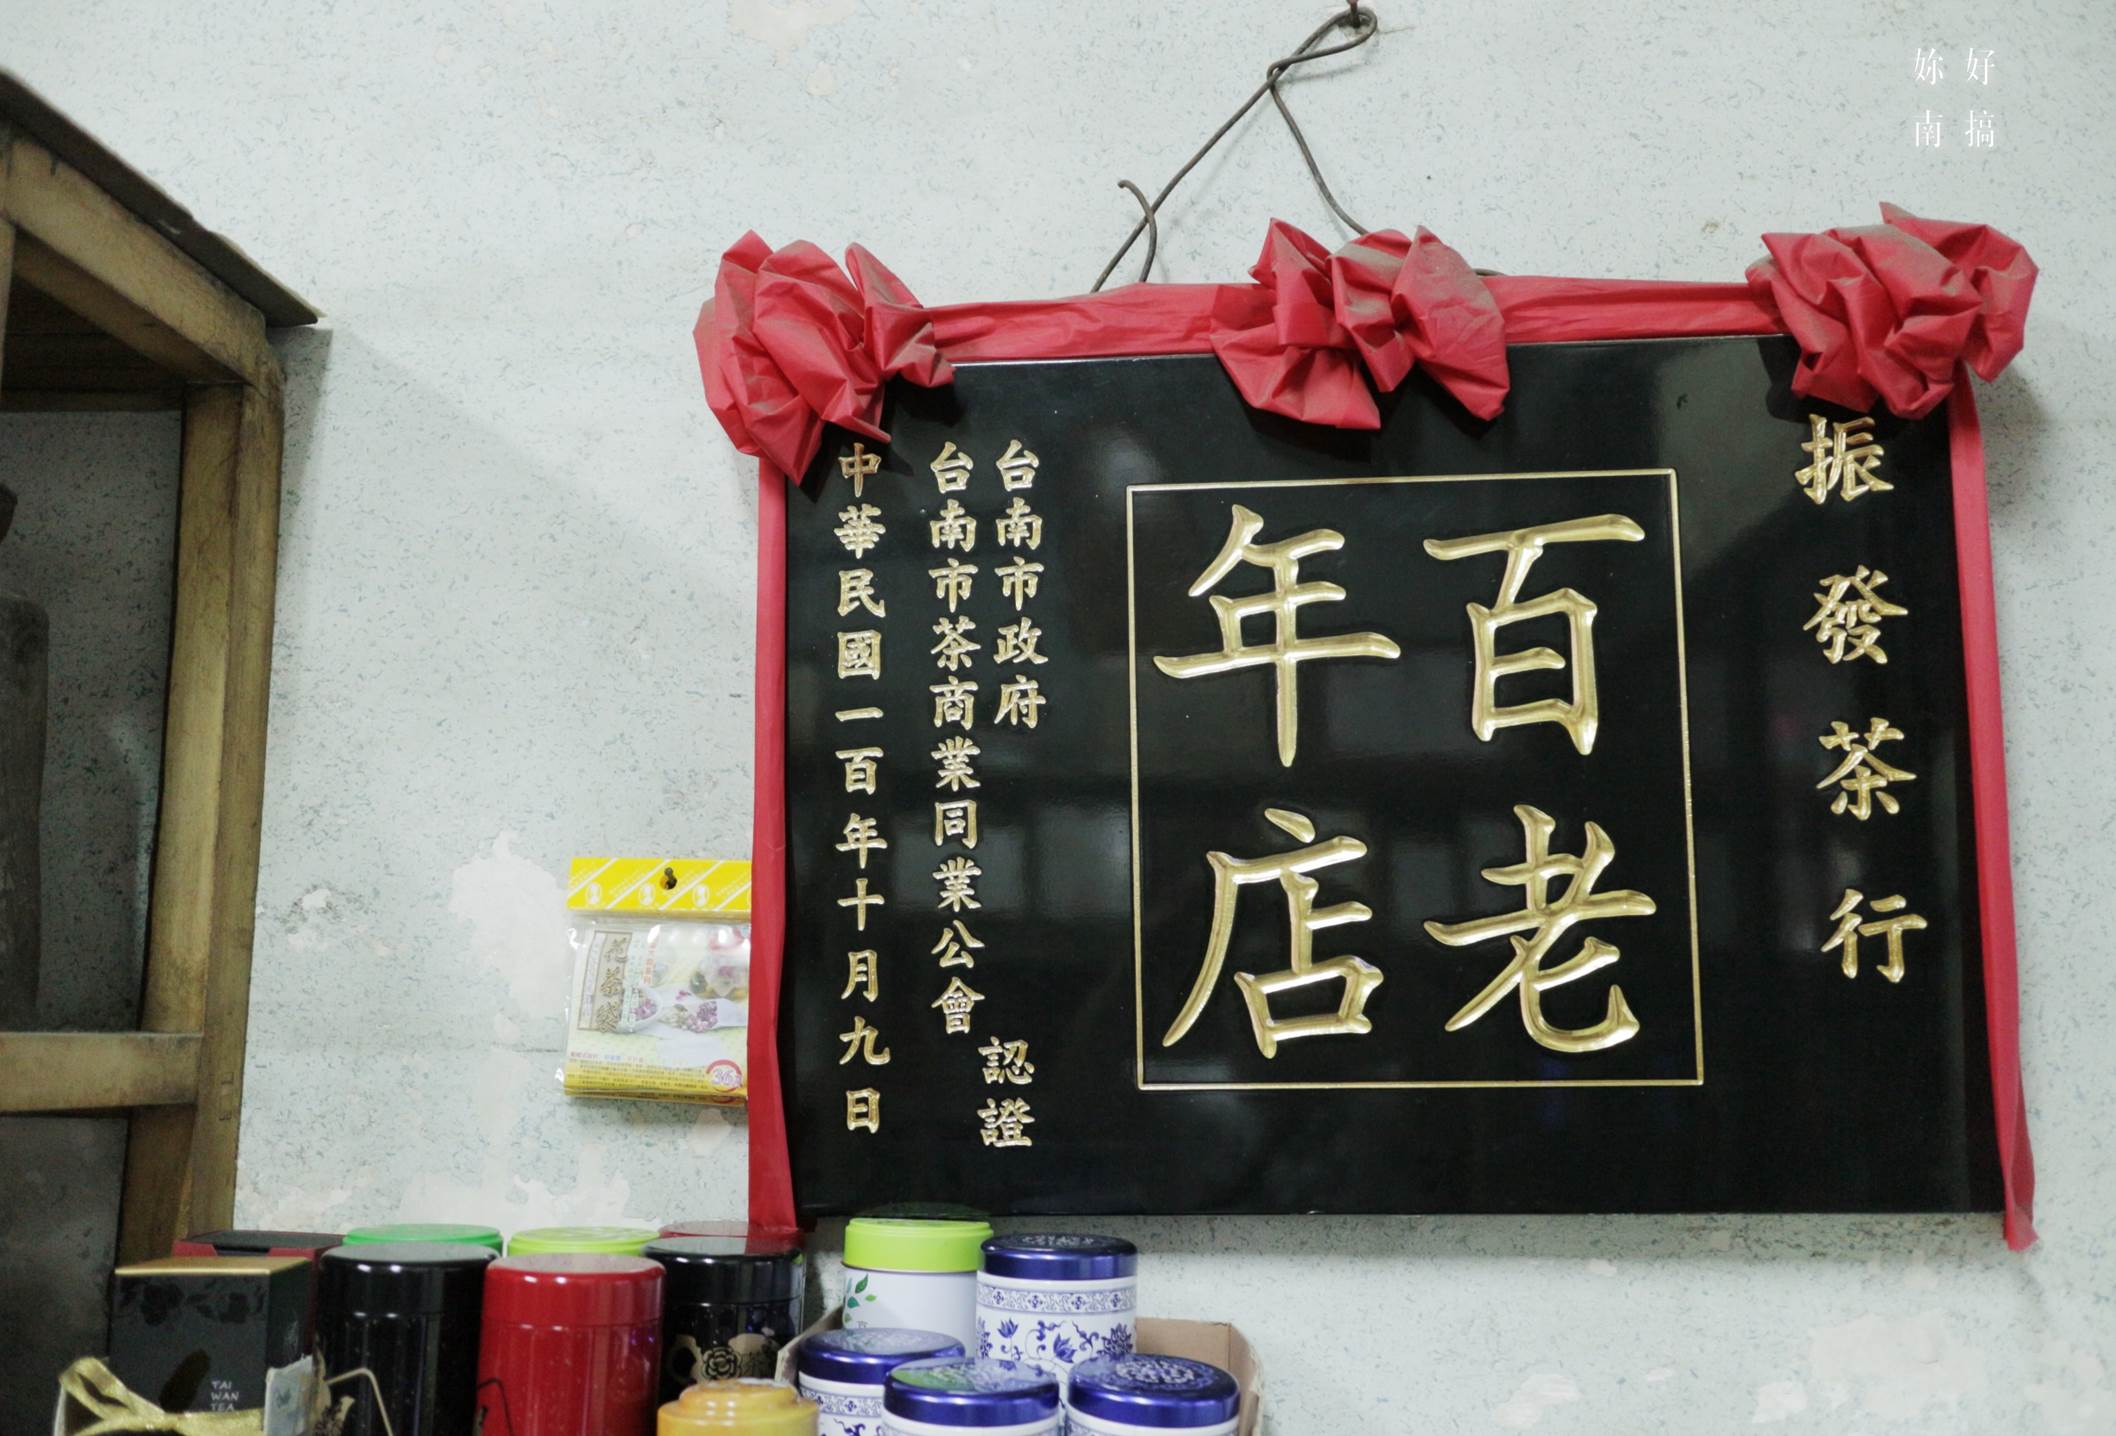 妳好
南搞
振發茶行
百老
年店
台南市政府
台南市茶商業同業公會
認證
中華民國一百年十月九日
花茶袋
TAI
WAN
TEA